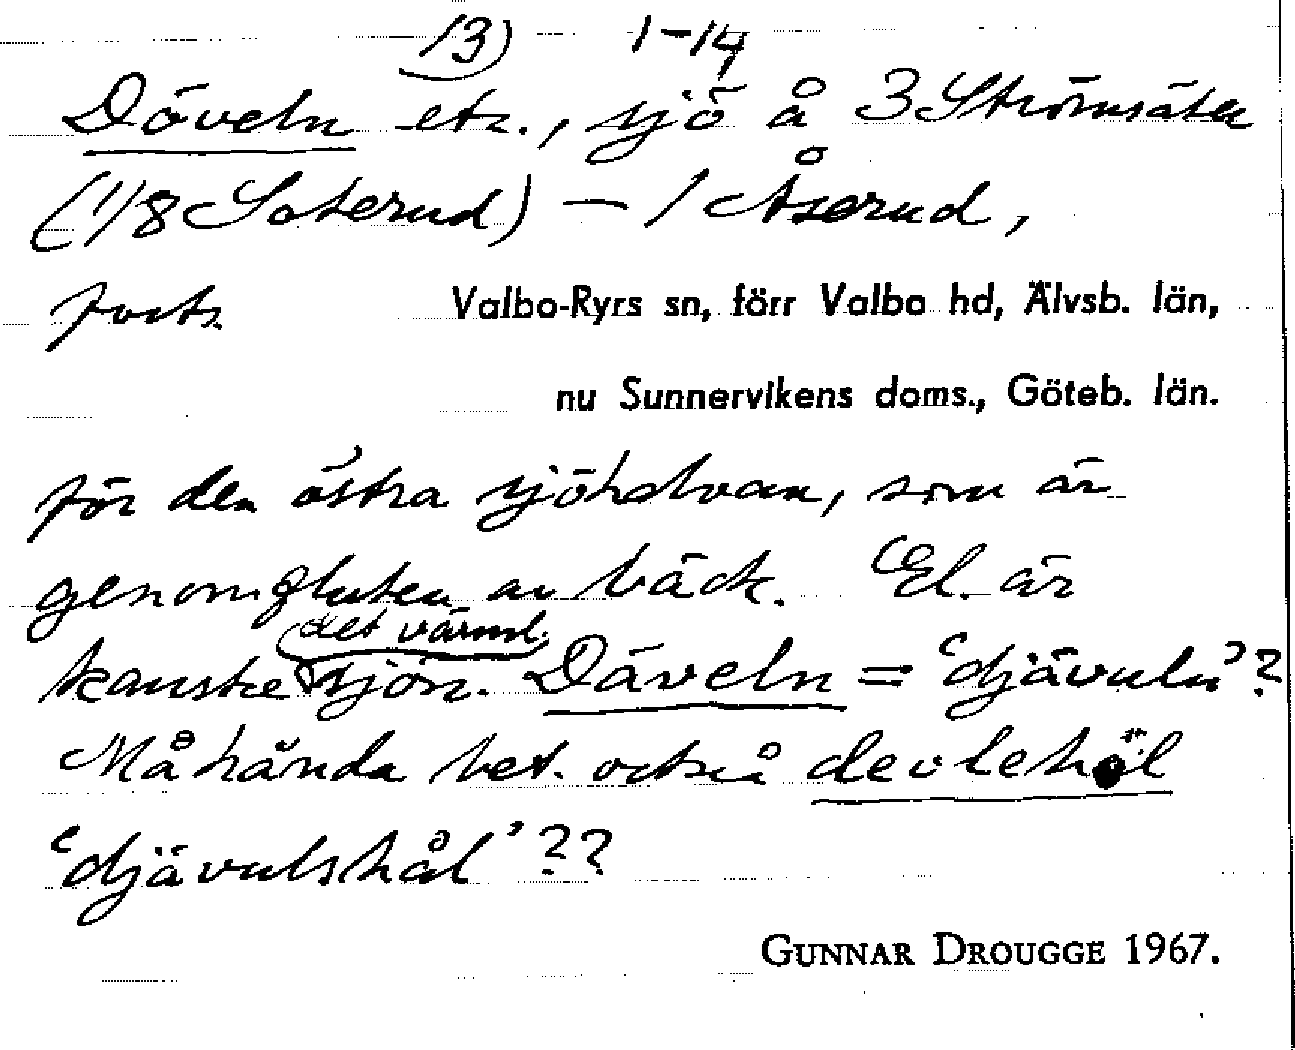 13) 1-14
Döveln etc., sjö å 3 Strömsäter
(1/8 Soterud) – 1 Åserud,
forts. Valbo-Ryrs sn, förr Valbo hd, Älvsb. län,
nu Sunnervikens doms., Göteb. län.
för den östra sjöhalvan, som är
genomfluten av bäck. El. är
det värml.
kanske sjön. Däveln = 'djävuln'?
Måhända bet. också devlehöl
'djävulshål'??
GUNNAR DROUGGE 1967.